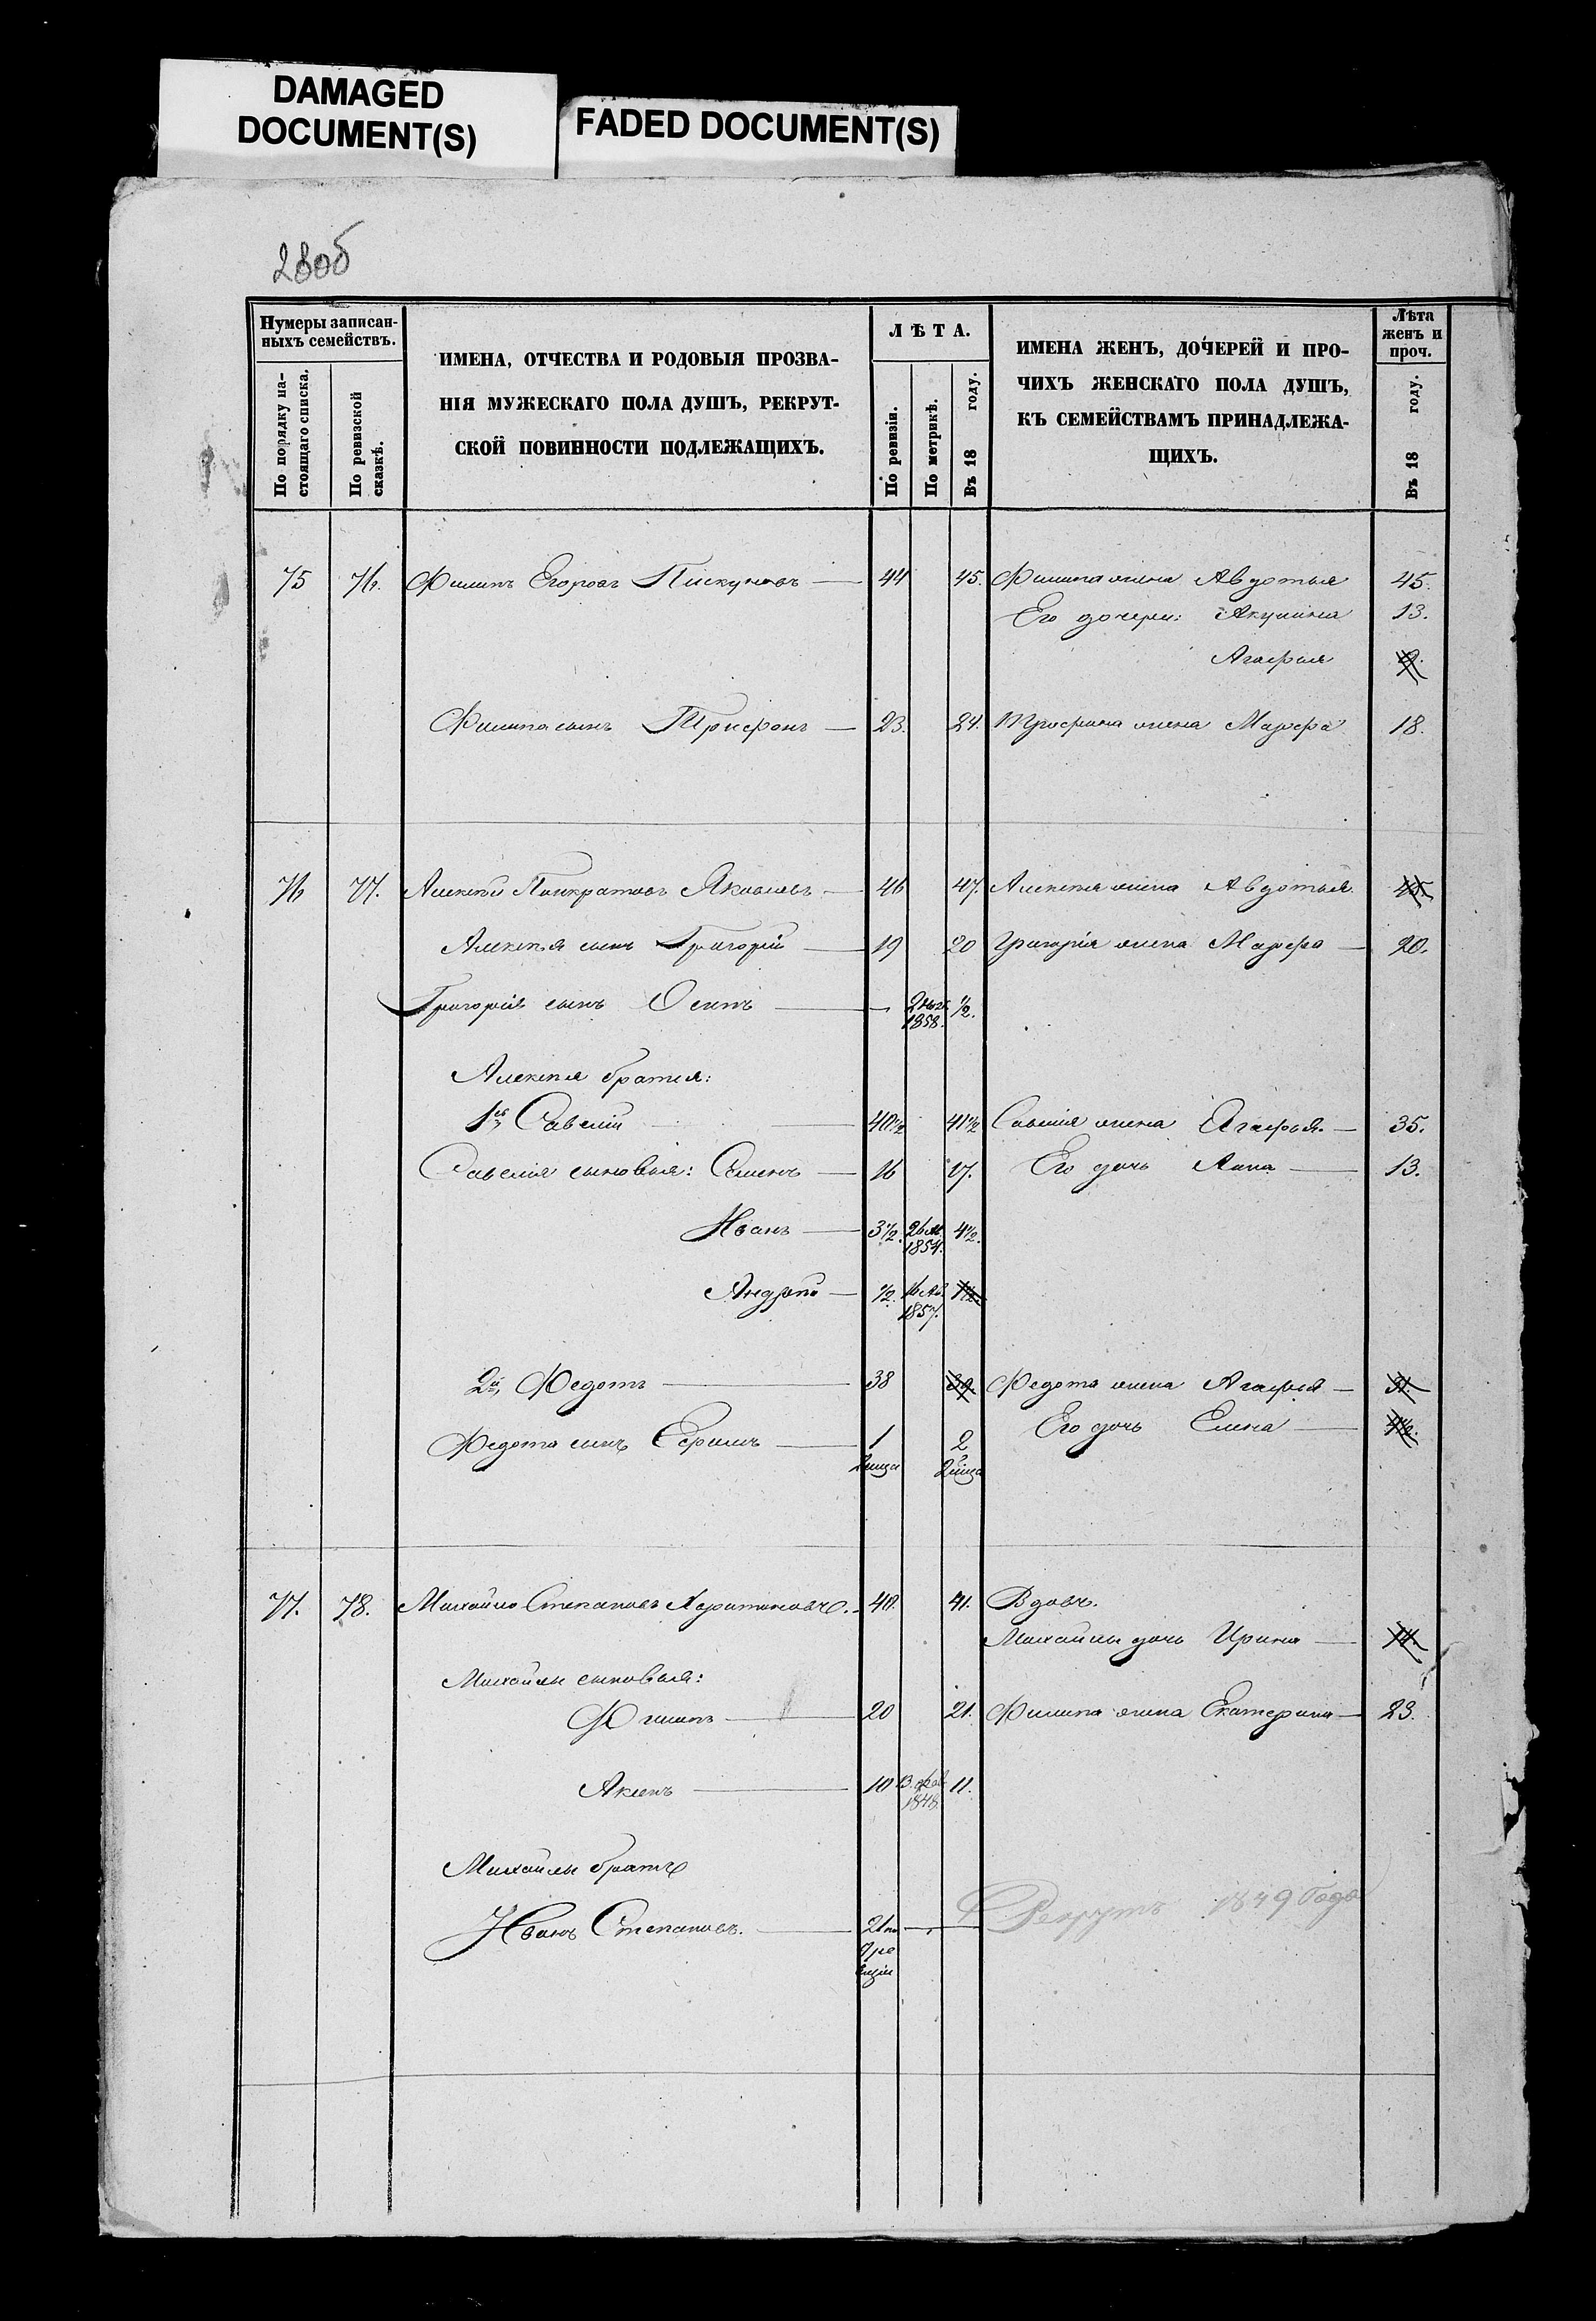 DAMAGED
DOCUMENT(S)
FADED DOCUMENT(S)
280б
Нумеры записан-
ныхъ семействъ.
По порядку на-
стоящаго списка.
По ревизской
сказкѣ.
ИМЕНА, ОТЧЕСТВА И РОДОВЫЯ ПРОЗВА-
НІЯ МУЖЕСКАГО ПОЛА ДУШЪ, РЕКРУТ-
СКОЙ ПОВИННОСТИ ПОДЛЕЖАЩИХЪ.
ЛѢТА.
По ревизіи.
По метрикѣ.
Въ 18 году.
ИМЕНА ЖЕНЪ, ДОЧЕРЕЙ И ПРО-
ЧИХЪ ЖЕНСКАГО ПОЛА ДУШЪ,
КЪ СЕМЕЙСТВАМЪ ПРИНАДЛЕЖА-
ЩИХЪ.
Лѣта
женъ и
проч.
Въ 18 году.
75 76. Филипъ Егоровъ Пискуновъ — 44 45. Филипа жена Авдотья 45.
Его дочери: Акулина 13.
Агафья
Филипа сынъ Трифонъ — 23. 24. Трифона жена Марфа 18.
76 77. Алексѣй Панкратовъ Яковлевъ — 46 47. Алексѣя жена Авдотья 45.
Алексѣя сынъ Григорій — 19 20 Григорія жена Марфа — 20.
Григорія сынъ Осипъ — 1858. 1/2.
Алексѣя братья:
1й Савелій 40 1/2 41 1/2 Савелія жена Агафья. — 35.
Савелія сыновья: Семенъ — 16 17. Его дочь Анна — 13.
Иванъ — 3 1/2. 1854. 4 1/2.
Андрей — 1/2. 1857. 1 1/2.
2й Федотъ — 38 39. Федота жена Агафья — 31.
Федота сынъ Ефимъ — 1 2 Его дочь Елена —
77. 78. Михайло Степановъ Харитоновъ. 40. 41. Вдовъ.
Михайлы дочь Ирина — 14.
Михайлы сыновья:
Филипъ — 20 21. Филипа жена Екатерина — 23.
Акимъ — 10 13. фев. 1848. 11.
Михайлы братъ
Иванъ Степановъ. — 21 по — Рекрутъ 1849 Года